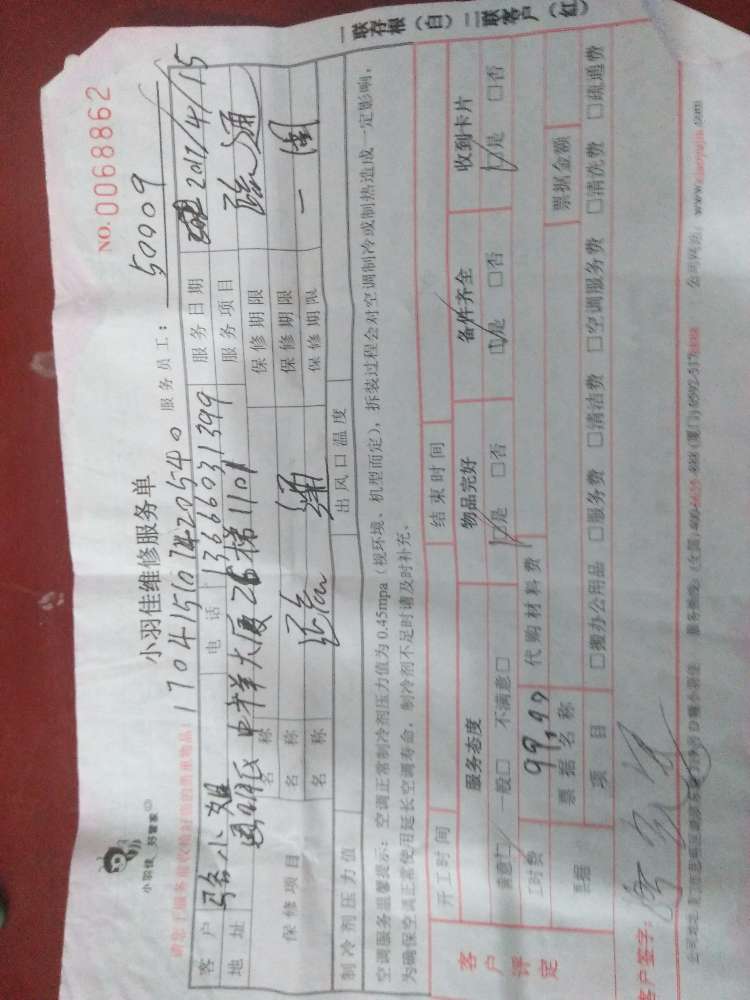 小羽佳 好管家
小羽佳维修服务单
NO.0068862
17041507420540 服务员工: 50009
客户 小姐 电话 13666031399 服务日期 2017/4/15
地址 思明区 大厦26梯1101 服务项目 疏通
保修项目 名称 保修期限
名称 保修期限
名称 保修期限 一周
制冷剂压力值 出风口温度
空调服务温馨提示: 空调正常制冷剂压力值为0.45mpa(视环境、机型而定), 拆装过程会对空调制冷或制热造成一定影响,
为确保空调正常使用延长空调寿命, 制冷剂不足时请及时补充。
开工时间 结束时间
客户评定 服务态度 物品完好 备件齐全 收到卡片
满意□ 一般□ 不满意□ □是 □否 □是 □否 □是 □否
工时费 99.99 代购材料费
票据 票据名称 票据金额
项目 □搬办公用品 □服务费 □清洁费 □空调服务费 □清洗费 □疏通费
客户签字:
一联存根(白) 二联客户(红)